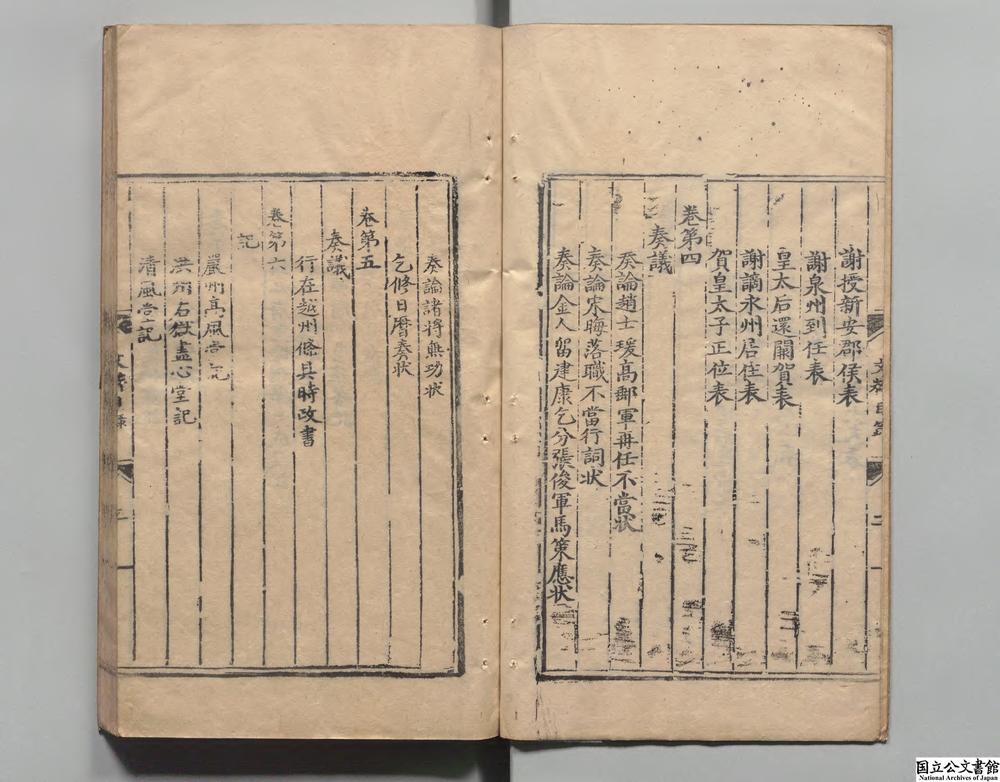 謝授新安郡侯表
謝泉州到任表
皇太后還闕賀表
謝謫永州居住表
賀皇太子正位表
卷第四
奏議
奏論趙士瑗高郵軍再任不當状
奏論宋晦落職不當行詞状
奏論金人留建康乞分張俊軍馬策應状
二
奏論諸将無功状
乞修日曆奏状
卷第五
奏議
行在越州條具時政書
卷第六
記
嚴州高風堂記
洪州右獄盡心堂記
清風堂記
国立公文書館
National Archives of Japan